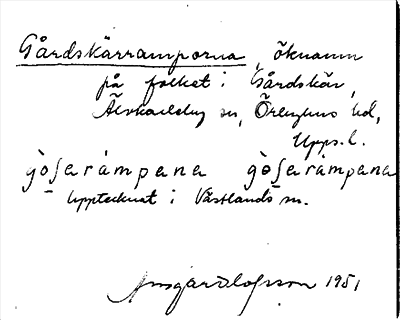 Gårdskärramporna, öknamn
på folket i Gårdskär,
Älvkarleby sn, Örbyhus hd,
Upps. l.
gòʃarámpana gòʃarámpana
Upptecknat i Västlands sn.
Ansgar Olofsson 1951